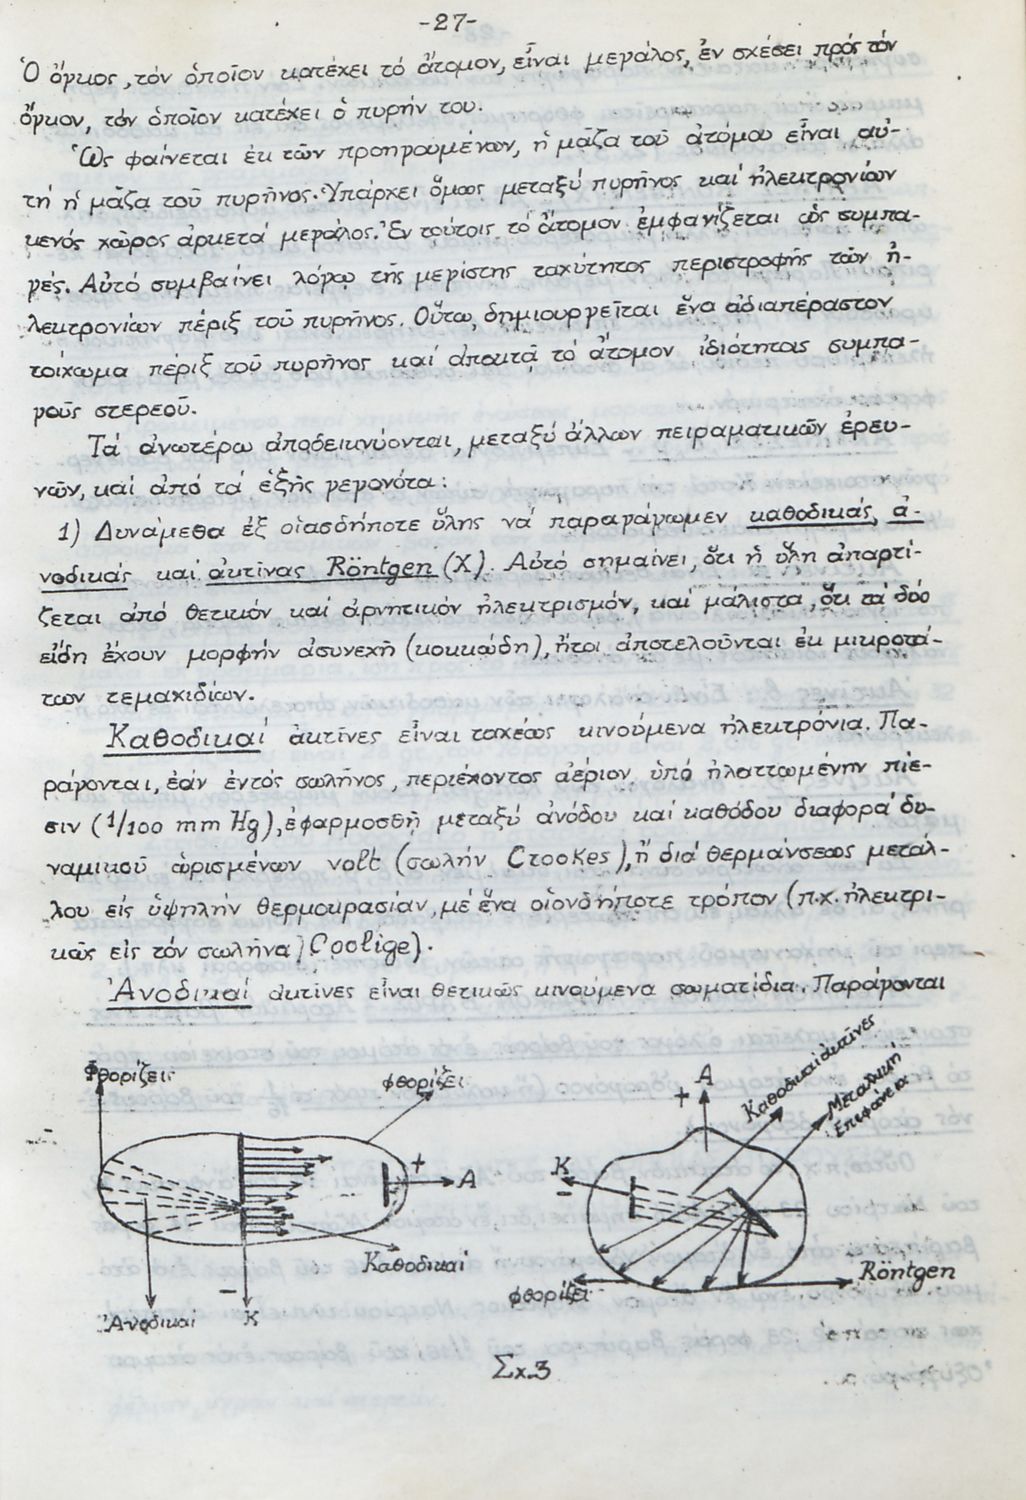 -27-
Ὁ ὄγκος, τόν ὁποῖον κατέχει τό ἄτομον, εἶναι μεγάλος, ἐν σχέσει πρός τόν
ὄγκον, τόν ὁποῖον κατέχει ὁ πυρήν του.
Ὡς φαίνεται ἐκ τῶν προηγουμένων, ἡ μᾶζα τοῦ ἀτόμου εἶναι αὐ-
τή ἡ μᾶζα τοῦ πυρῆνος. Ὑπάρχει ὅμως μεταξύ πυρῆνος καί ἠλεκτρονίων
κενός χῶρος ἀρκετά μεγάλος. Ἐν τούτοις τό ἄτομον ἐμφανίζεται ὡς συμπα-
γές. Αὐτό συμβαίνει λόγῳ τῆς μεγίστης ταχύτητος περιστροφῆς τῶν ἠ-
λεκτρονίων πέριξ τοῦ πυρῆνος. Οὕτω, δημιουργεῖται ἕνα ἀδιαπέραστον
τοίχωμα πέριξ τοῦ πυρῆνος καί ἀποκτᾶ τό ἄτομον ἰδιότητας συμπα-
γοῦς στερεοῦ.
Τά ἀνωτέρω ἀποδεικνύονται, μεταξύ ἄλλων πειραματικῶν ἐρευ-
νῶν, καί ἀπό τά ἑξῆς γεγονότα:
1) Δυνάμεθα ἐξ οἱασδήποτε ὕλης νά παραγάγωμεν καθοδικάς, ἀ-
νοδικάς καί ἀκτῖνας Röntgen (X). Αὐτό σημαίνει, ὅτι ἡ ὕλη ἀπαρτί-
ζεται ἀπό θετικόν καί ἀρνητικόν ἠλεκτρισμόν, καί μάλιστα, ὅτι τά δύο
εἴδη ἔχουν μορφήν ἀσυνεχῆ (κοκκώδη), ἤτοι ἀποτελοῦνται ἐκ μικροτά-
των τεμαχιδίων.
Καθοδικαί ἀκτῖνες εἶναι ταχέως κινούμενα ἠλεκτρόνια. Πα-
ράγονται, ἐάν ἐντός σωλῆνος, περιέχοντος ἀέριον ὑπό ἠλαττωμένην πίε-
σιν (1/100 mm Hg), ἐφαρμοσθῆ μεταξύ ἀνόδου καί καθόδου διαφορά δυ-
ναμικοῦ ὡρισμένων volt (σωλήν Crookes), ἤ διά θερμάνσεως μετάλ-
λου εἰς ὑψηλήν θερμοκρασίαν, μέ ἕνα οἱονδήποτε τρόπον (π.χ. ἠλεκτρι-
κῶς εἰς τόν σωλῆνα) Coolige).
Ἀνοδικαί ἀκτῖνες εἶναι θετικῶς κινούμενα σωματίδια. Παράγονται
φθορίζει
φθορίζει
+ A
Καθοδικαί
Ἀνοδικαί
- K
A
+
Καθοδικαί ἀκτῖνες
Μεταλλική
Ἐπιφάνεια
K
-
φθορίζει
Röntgen
Σχ.3